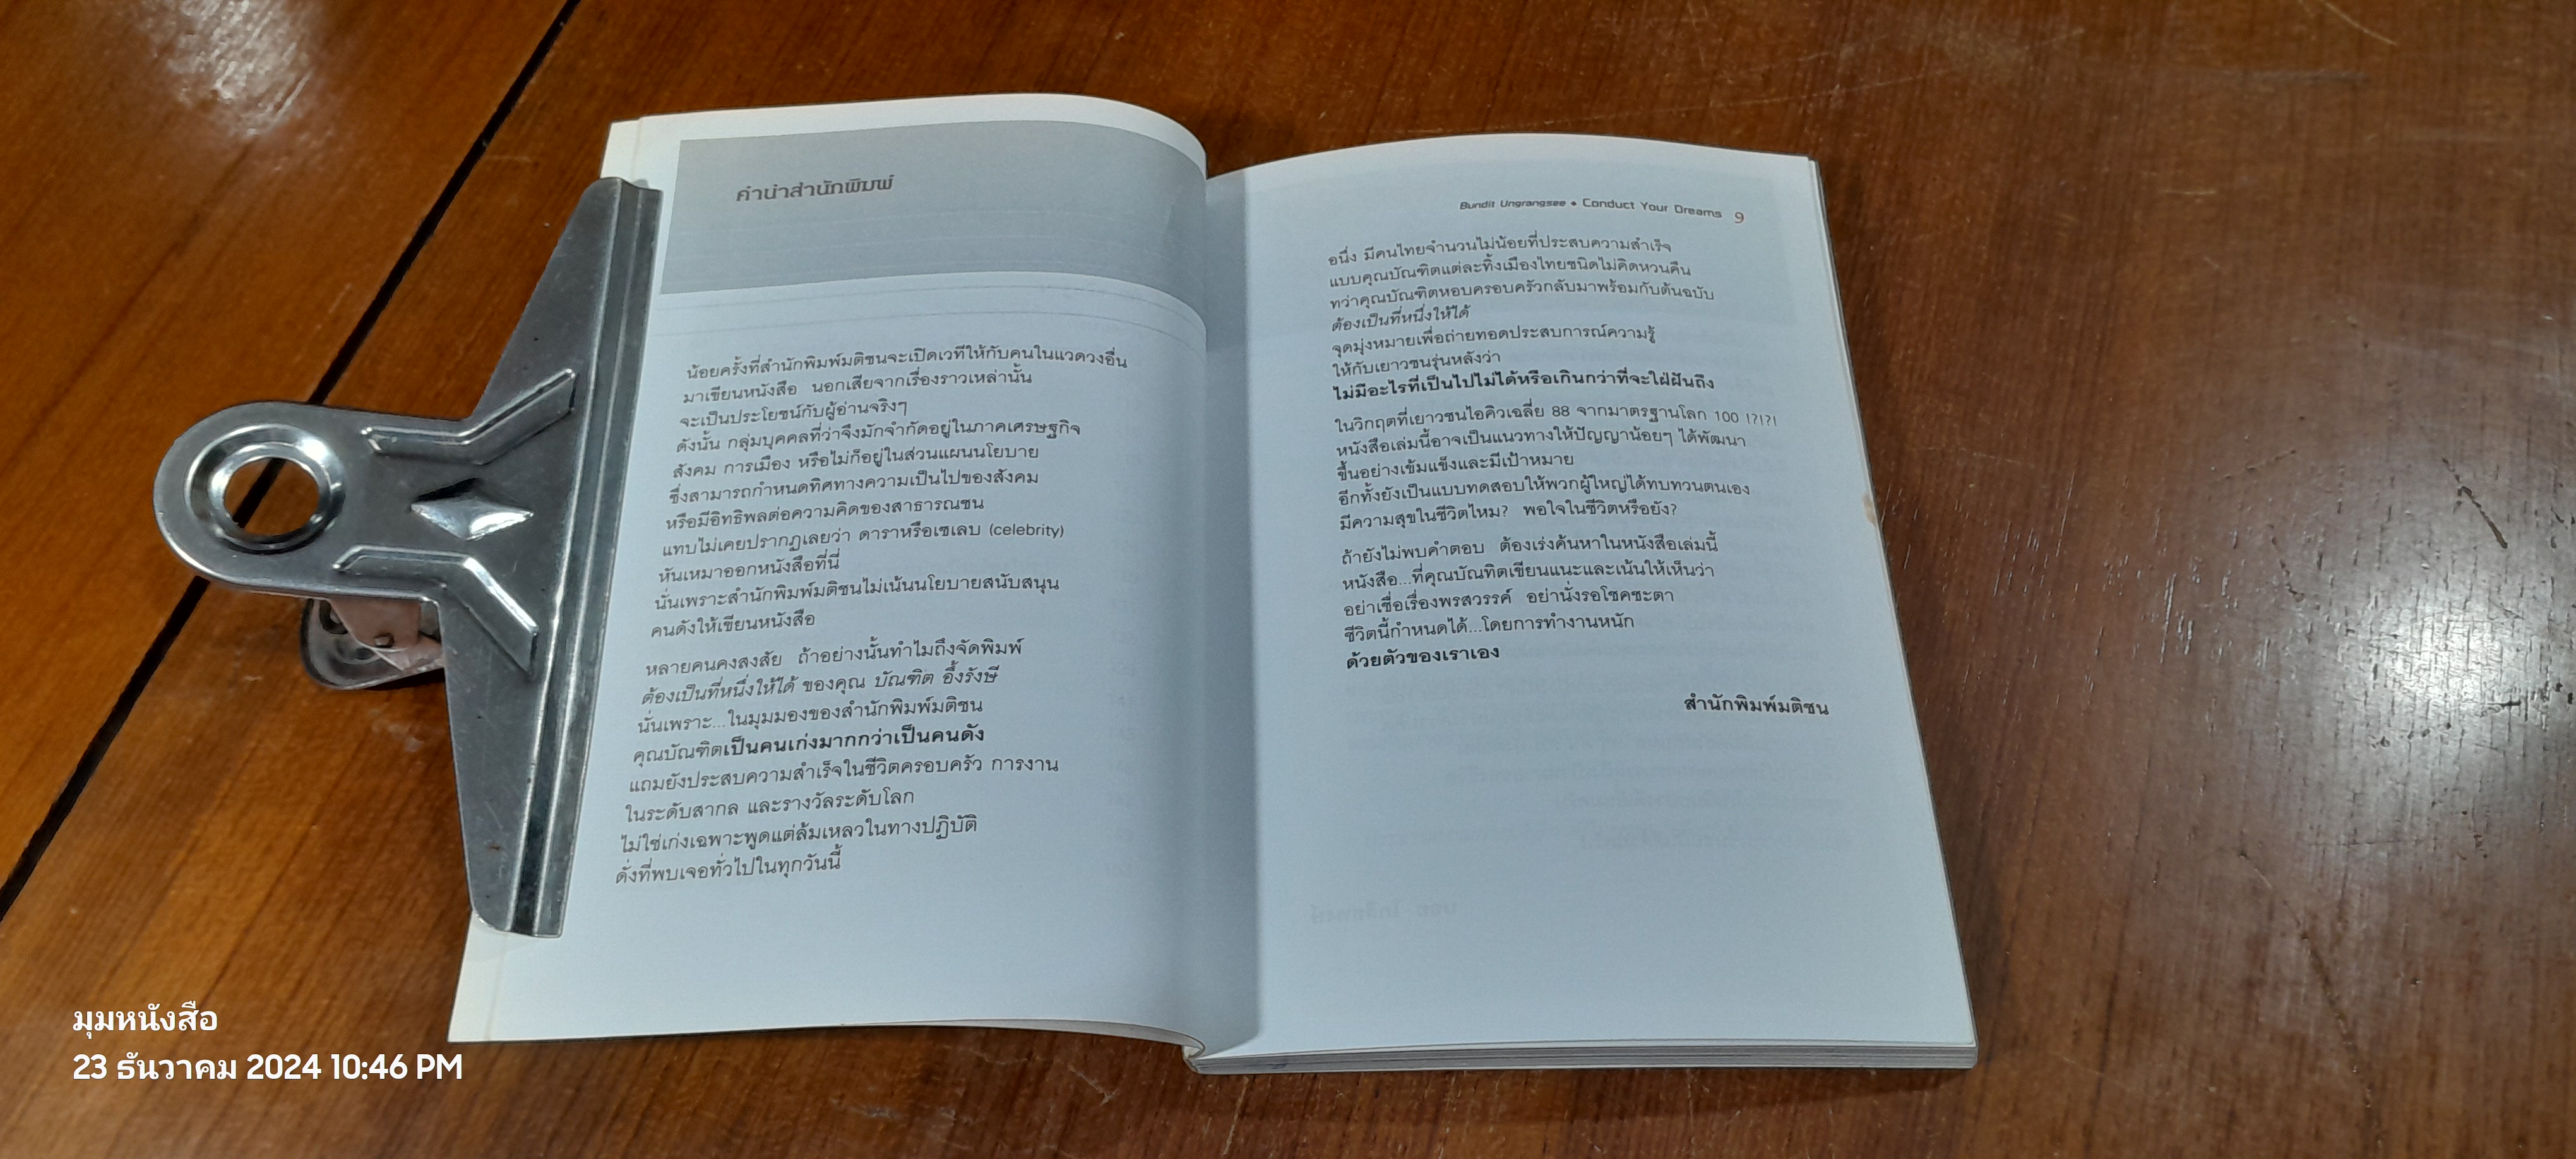 คำนำสำนักพิมพ์
น้อยครั้งที่สำนักพิมพ์มติชนจะเปิดเวทีให้กับคนในแวดวงอื่น
มาเขียนหนังสือ นอกเสียจากเรื่องราวเหล่านั้น
จะเป็นประโยชน์กับผู้อ่านจริงๆ
ดังนั้น กลุ่มบุคคลที่ว่าจึงมักจำกัดอยู่ในภาคเศรษฐกิจ
สังคม การเมือง หรือไม่ก็อยู่ในส่วนแผนนโยบาย
ซึ่งสามารถกำหนดทิศทางความเป็นไปของสังคม
หรือมีอิทธิพลต่อความคิดของสาธารณชน
แทบไม่เคยปรากฏเลยว่า ดาราหรือเซเลบ (celebrity)
หันเหมาออกหนังสือที่นี่
นั่นเพราะสำนักพิมพ์มติชนไม่เน้นนโยบายสนับสนุน
คนดังให้เขียนหนังสือ
หลายคนคงสงสัย ถ้าอย่างนั้นทำไมถึงจัดพิมพ์
ต้องเป็นที่หนึ่งให้ได้ ของคุณ บัณฑิต อึ้งรังษี
นั่นเพราะ...ในมุมมองของสำนักพิมพ์มติชน
คุณบัณฑิตเป็นคนเก่งมากกว่าเป็นคนดัง
แถมยังประสบความสำเร็จในชีวิตครอบครัว การงาน
ในระดับสากล และรางวัลระดับโลก
ไม่ใช่เก่งเฉพาะพูดแต่ล้มเหลวในทางปฏิบัติ
ดั่งที่พบเจอทั่วไปในทุกวันนี้
Bundit Ungrangsee • Conduct Your Dreams 9
อนึ่ง มีคนไทยจำนวนไม่น้อยที่ประสบความสำเร็จ
แบบคุณบัณฑิตแต่ละทิ้งเมืองไทยชนิดไม่คิดหวนคืน
ทว่าคุณบัณฑิตหอบครอบครัวกลับมาพร้อมกับต้นฉบับ
ต้องเป็นที่หนึ่งให้ได้
จุดมุ่งหมายเพื่อถ่ายทอดประสบการณ์ความรู้
ให้กับเยาวชนรุ่นหลังว่า
ไม่มีอะไรที่เป็นไปไม่ได้หรือเกินกว่าที่จะใฝ่ฝันถึง
ในวิกฤตที่เยาวชนไอคิวเฉลี่ย 88 จากมาตรฐานโลก 100 !?!?!
หนังสือเล่มนี้อาจเป็นแนวทางให้ปัญญาน้อยๆ ได้พัฒนา
ขึ้นอย่างเข้มแข็งและมีเป้าหมาย
อีกทั้งยังเป็นแบบทดสอบให้พวกผู้ใหญ่ได้ทบทวนตนเอง
มีความสุขในชีวิตไหม? พอใจในชีวิตหรือยัง?
ถ้ายังไม่พบคำตอบ ต้องเร่งค้นหาในหนังสือเล่มนี้
หนังสือ...ที่คุณบัณฑิตเขียนแนะและเน้นให้เห็นว่า
อย่าเชื่อเรื่องพรสวรรค์ อย่านั่งรอโชคชะตา
ชีวิตนี้กำหนดได้...โดยการทำงานหนัก
ด้วยตัวของเราเอง
สำนักพิมพ์มติชน
มุมหนังสือ
23 ธันวาคม 2024 10:46 PM